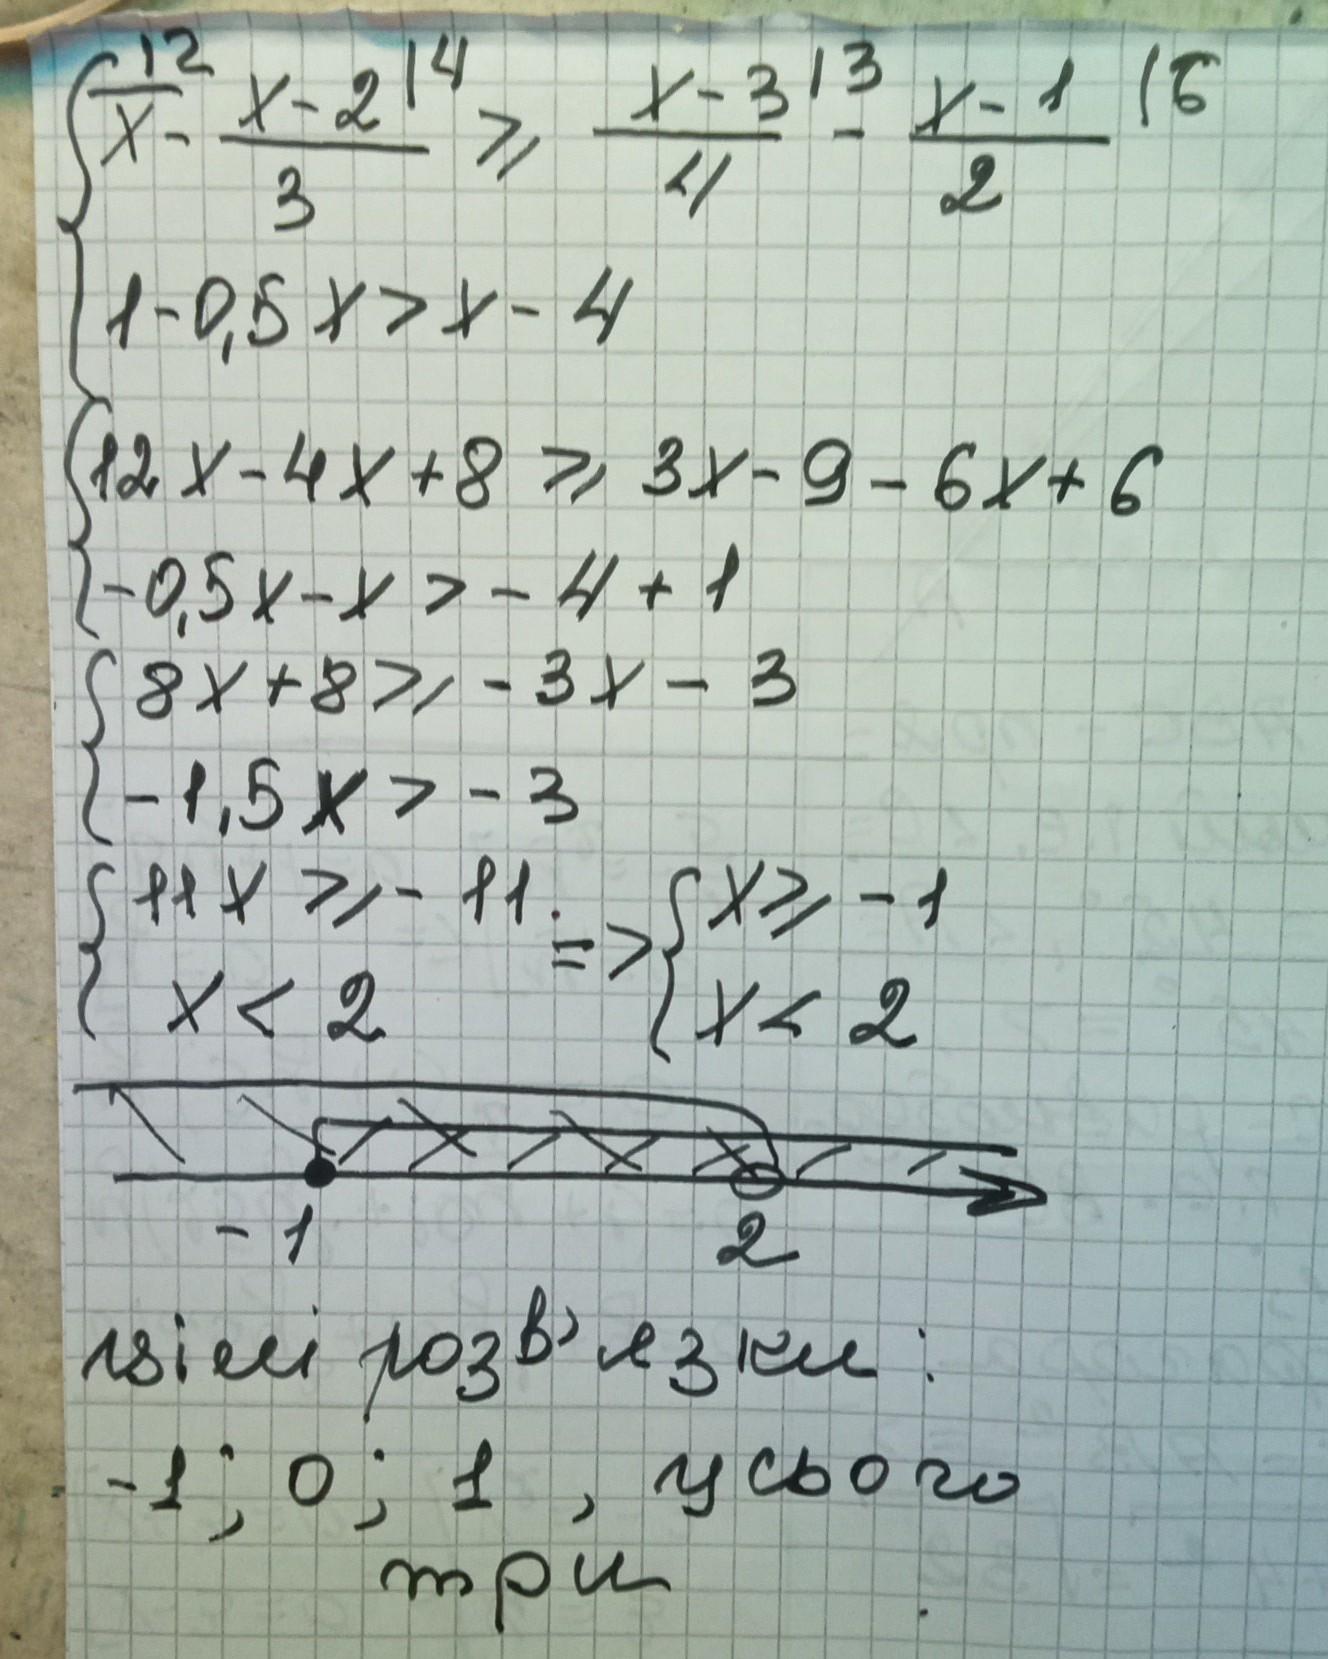 12 |4 |3 |6
x - (x-2)/3 ⩾ (x-3)/4 - (x-1)/2
1-0,5x>x-4
12x-4x+8 ⩾ 3x-9-6x+6
-0,5x-x>-4+1
8x+8⩾-3x-3
-1,5x>-3
11x⩾-11 => x⩾-1
x<2 x<2
-1 2
цілі розв'язки:
-1; 0; 1, усього
три